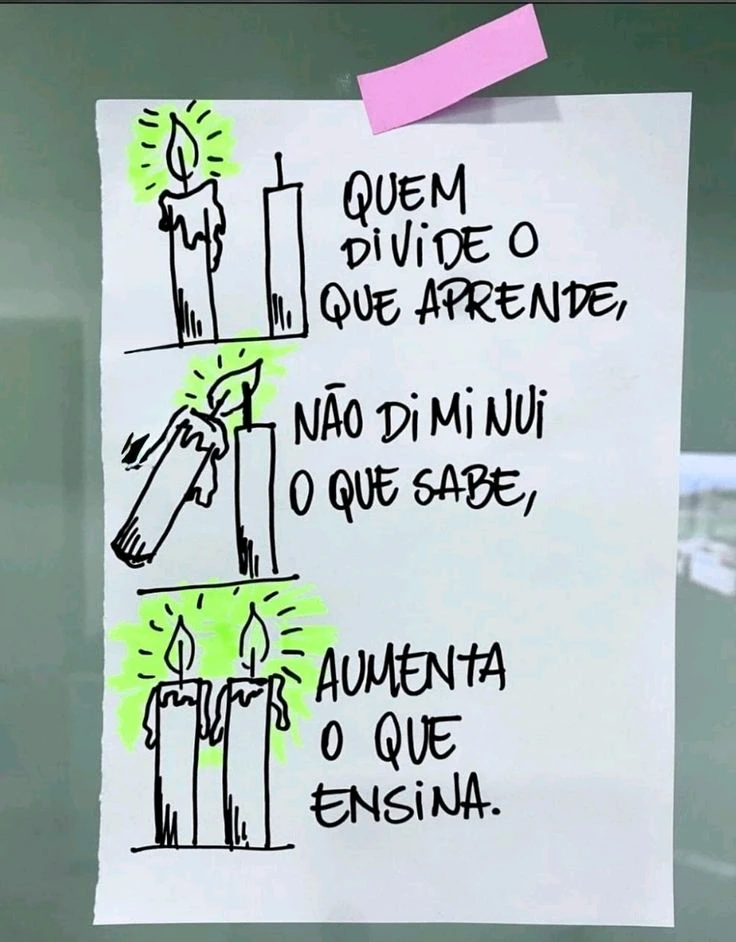 QUEM
DIVIDE O
QUE APRENDE,
NÃO DIMINUI
O QUE SABE,
AUMENTA
O QUE
ENSINA.